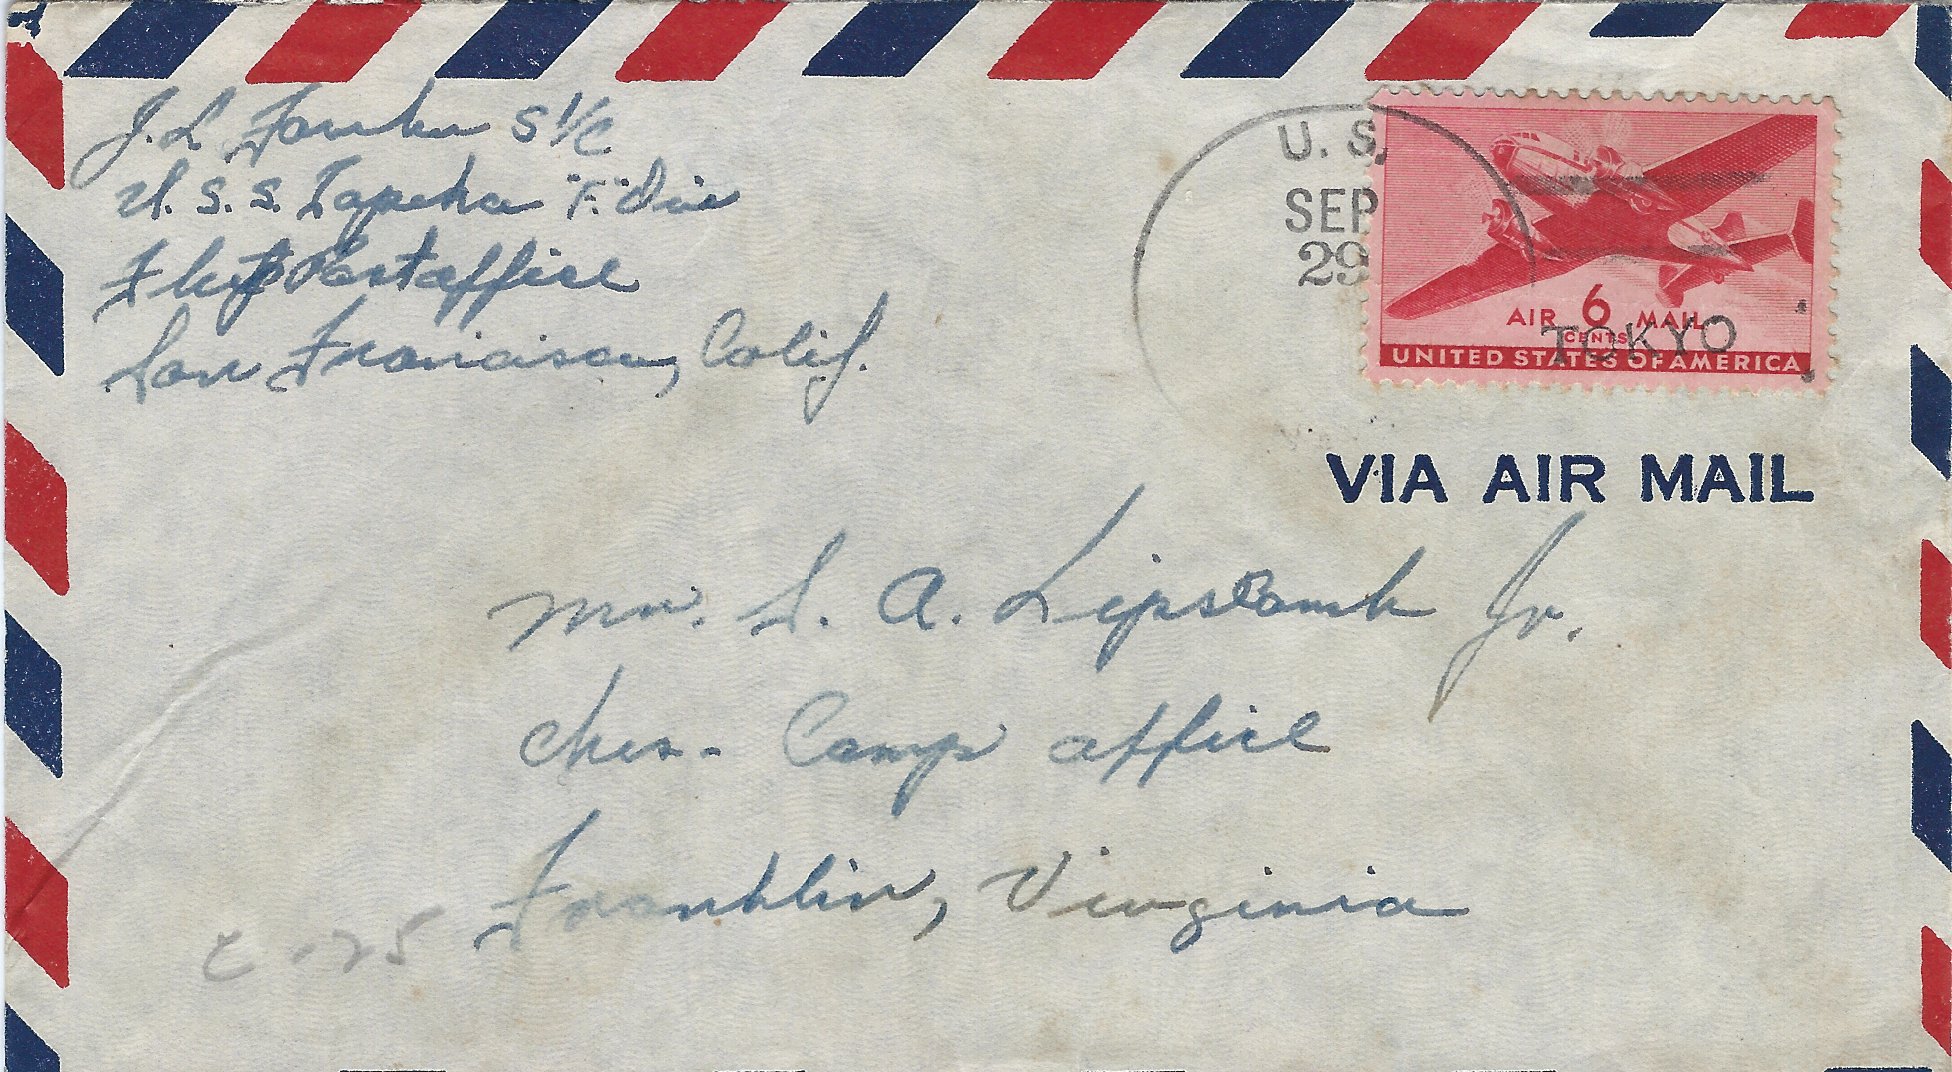 J. L. S 1/C
U. S. S. Topeka "F." Div
Fleet Post office
San Francisco, Calif.
U. S.
SEP
29
AIR 6 MAIL
CENTS
TOKYO
UNITED STATES OF AMERICA
VIA AIR MAIL
Mr. S. A. Lipscomb Jr.
Ches- Camp office
Franklin, Virginia